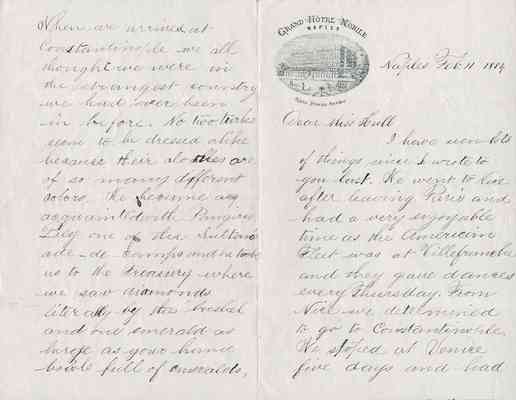 GRAND HÔTEL NOBILE
NAPLES
Naples Feb. 11 1884
Dear Miss Hull
I have seen lots
of things since I wrote to
you last. We went to Nice
after leaving Paris and
had a very enjoyable
time as the American
Fleet was at Villefranche
and they gave dances
every Thursday. From
Nice we determined
to go to Constantinople.
We stoped at Venice
five days and had
When we arrived at
Constantinople we all
thought we were in
the strangest country
we had ever been
in before. No two turks
seem to be dressed alike
because their clothes are
of so many different
colors. We became
acquainted with
one of the Sultans
aide-de-camps and he took
us to the Treasury where
we saw diamonds
literally by the bushel
and one emerald as
large as your hand
bowls full of emeralds,